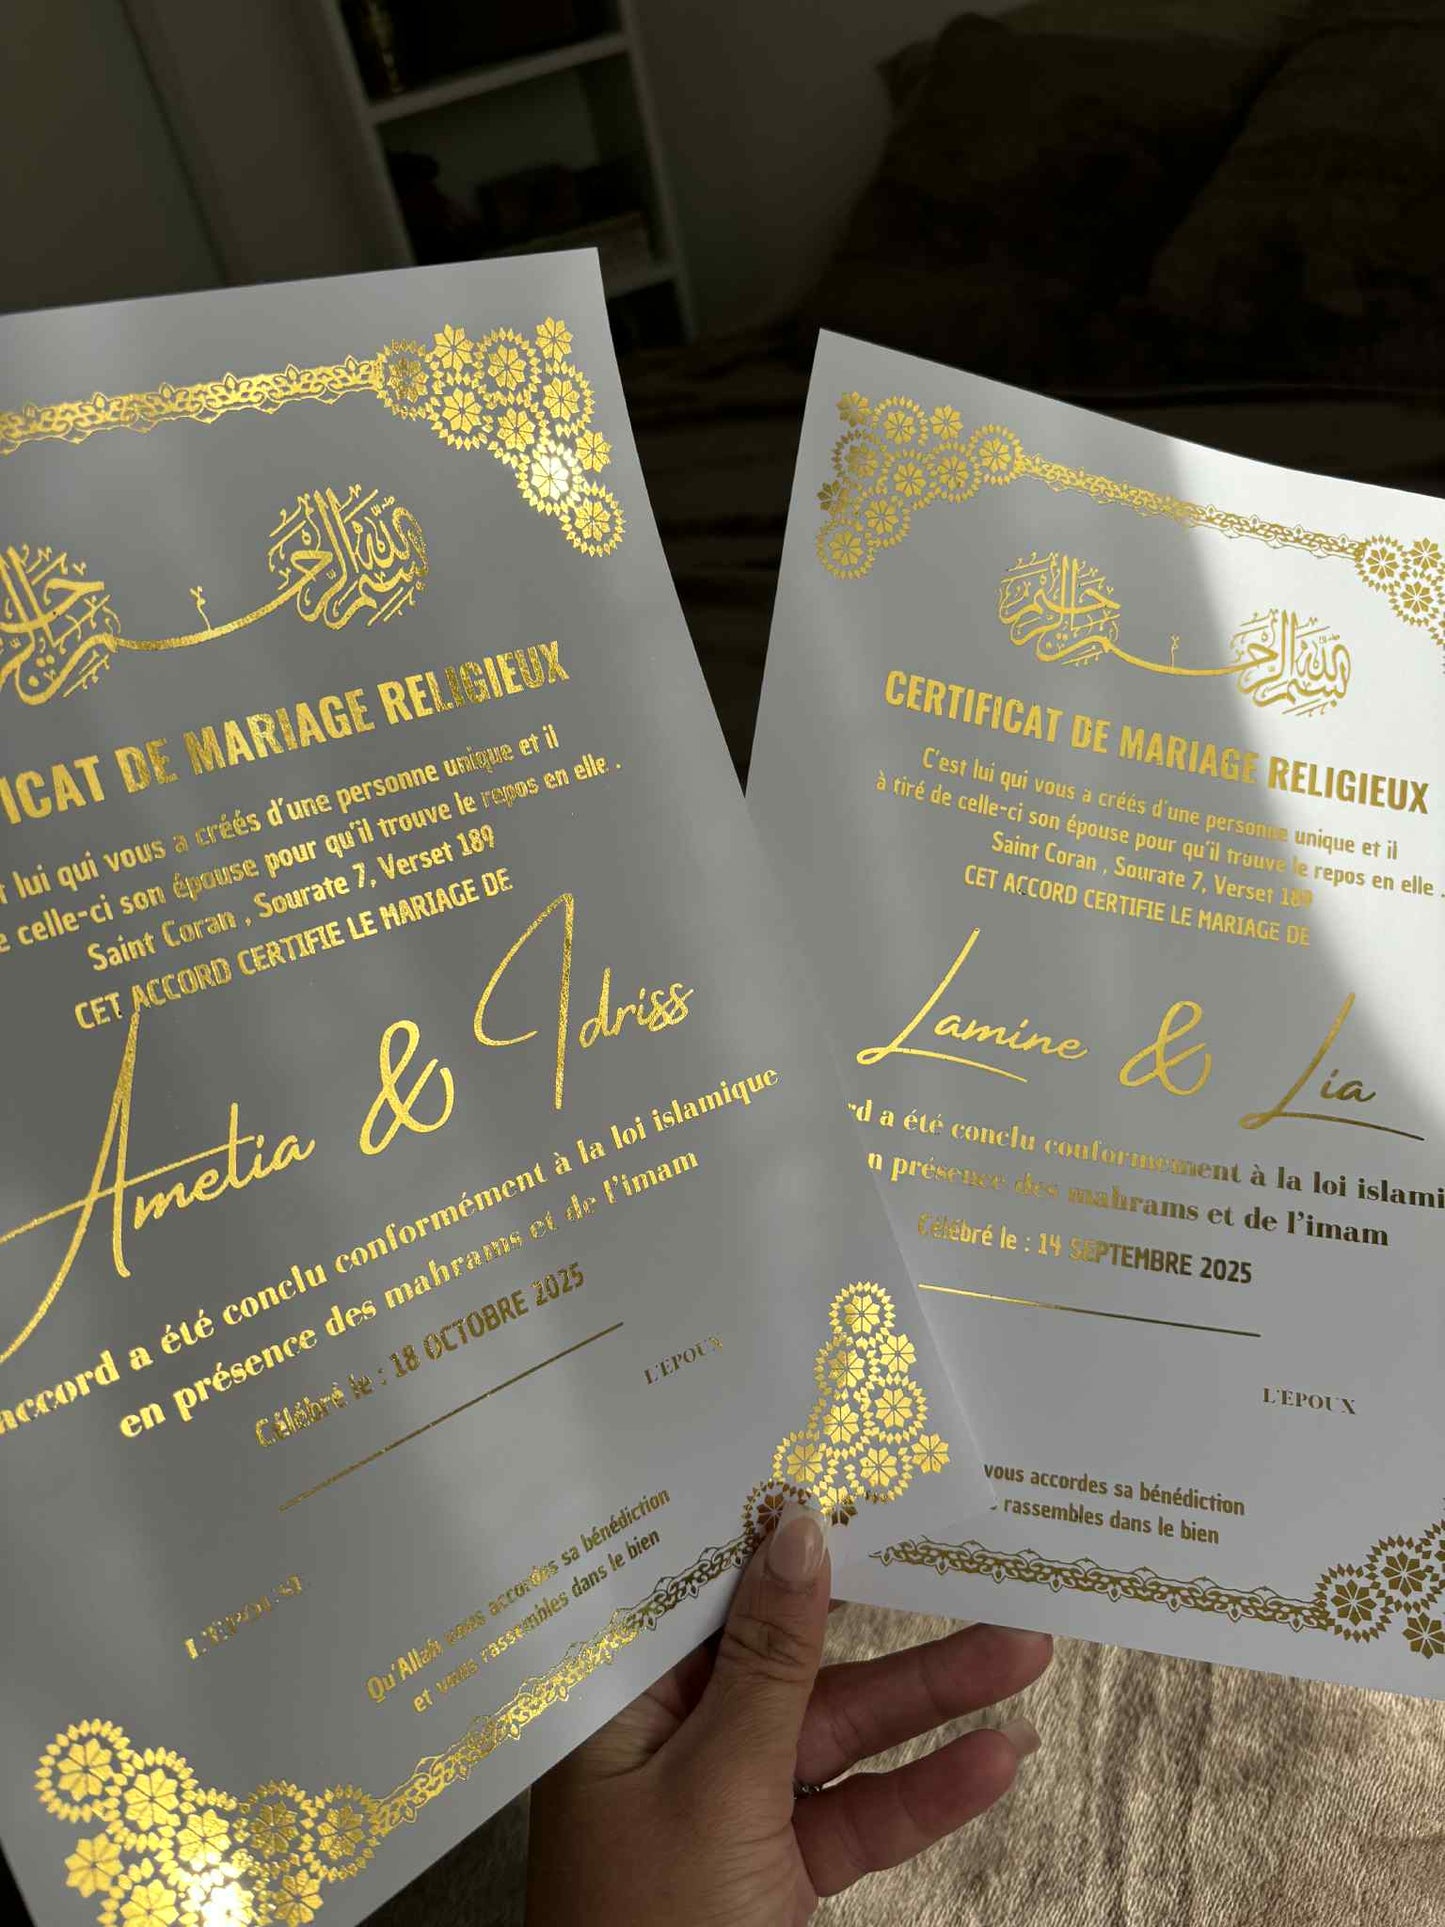 بسم الله الرحمن الرحيم
DE MARIAGE RELIGIEUX
lui qui vous a créés d'une personne unique et il
celle-ci son épouse pour qu'il trouve le repos en elle .
Saint Coran , Sourate 7, Verset 189
CET ACCORD CERTIFIE LE MARIAGE DE
Amelia & Idriss
accord a été conclu conformément à la loi islamique
en présence des mahrams et de l'imam
Célébré le : 18 OCTOBRE 2025
L'EPOUX
L'EPOUSE
Qu'Allah vous accordes sa bénédiction
et vous rassembles dans le bien
بسم الله الرحمن الرحيم
CERTIFICAT DE MARIAGE RELIGIEUX
C'est lui qui vous a créés d'une personne unique et il
à tiré de celle-ci son épouse pour qu'il trouve le repos en elle .
Saint Coran , Sourate 7, Verset 189
CET ACCORD CERTIFIE LE MARIAGE DE
Lamine & Lia
a été conclu conformément à la loi islami
présence des mahrams et de l'imam
Célébré le : 14 SEPTEMBRE 2025
L'EPOUX
vous accordes sa bénédiction
rassembles dans le bien